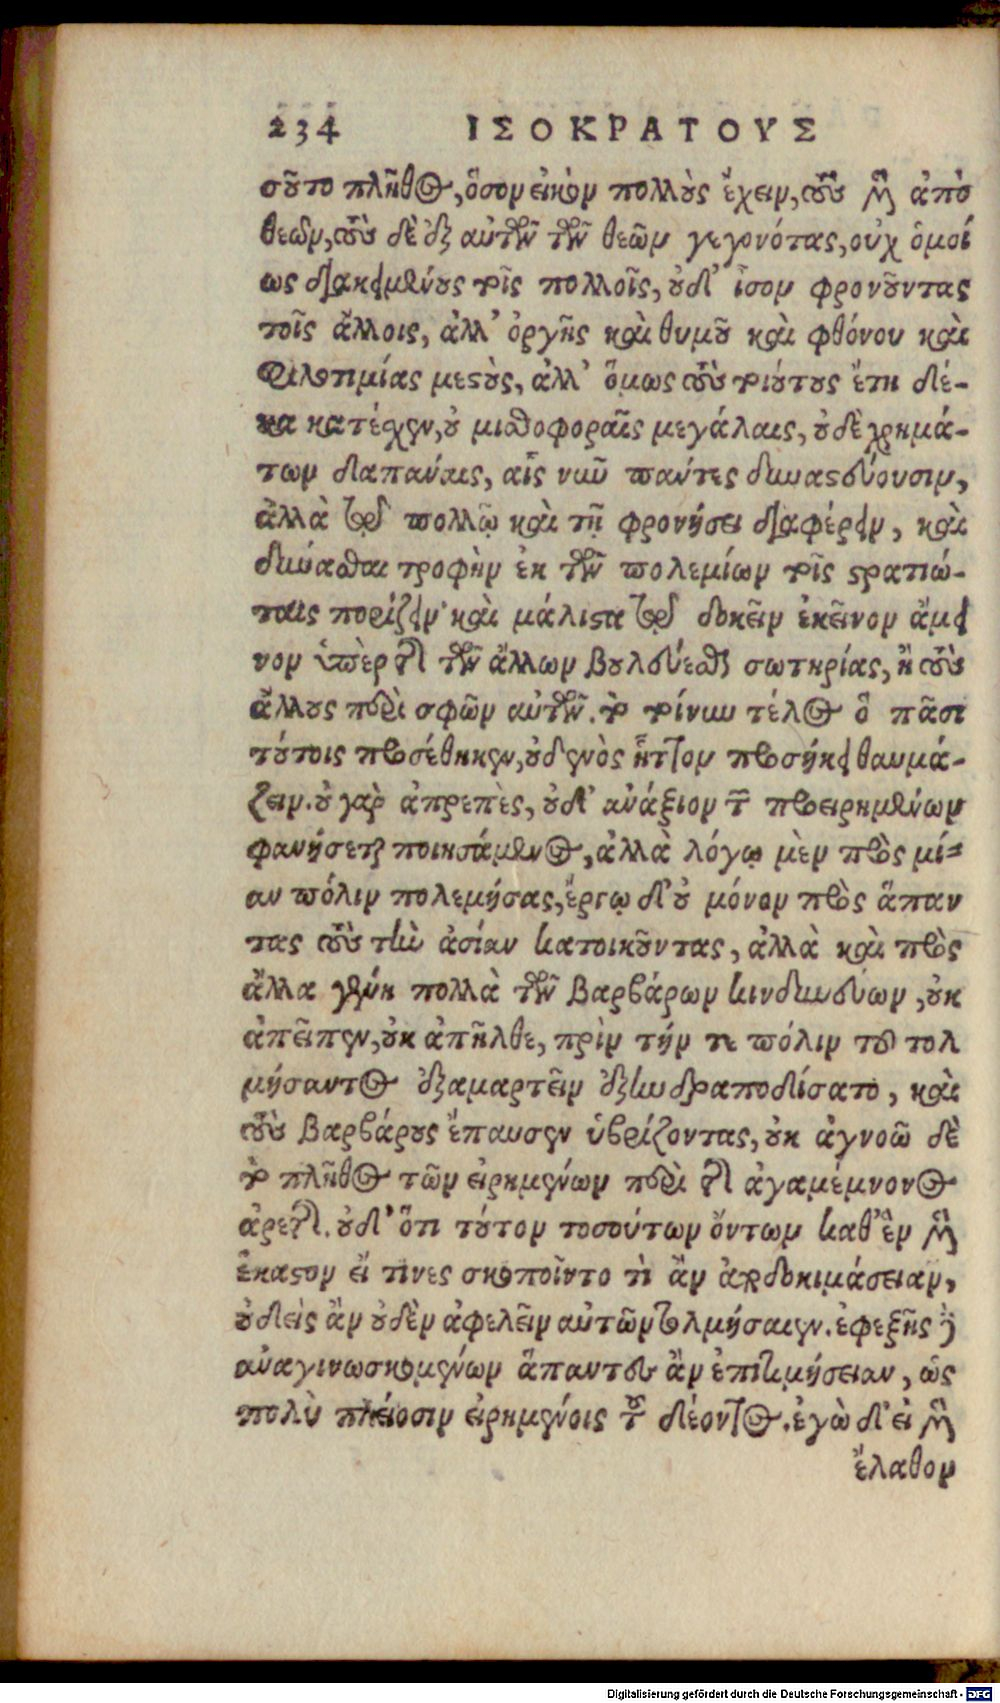 234 ΙΣΟΚΡΑΤΟΥΣ
σοῦτο πλῆθος, ὅσον εἰκὸν πολλοὺς ἔχειν, τοὺς μὲν ἀπὸ
θεῶν, τοὺς δὲ ἐξ αὐτῶν τῶν θεῶν γεγονότας, οὐχ ὁμοί
ως διακειμένους τοῖς πολλοῖς, οὐδ' ἴσον φρονοῦντας
τοῖς ἄλλοις, ἀλλ' ὀργῆς καὶ θυμοῦ καὶ φθόνου καὶ
φιλοτιμίας μεστοὺς, ἀλλ' ὅμως τοὺς τοιούτους ἔτη δέ-
κα κατέσχεν, οὐ μισθοφοραῖς μεγάλαις, οὐδὲ χρημά-
των δαπάναις, αἷς νῦν πάντες δυναστεύουσιν,
ἀλλὰ τῷ πολλῷ καὶ τῇ φρονήσει διαφέρειν, καὶ
δύνασθαι τροφὴν ἐκ τῶν πολεμίων τοῖς στρατιώ-
ταις πορίζειν· καὶ μάλιστα τῷ δοκεῖν ἐκεῖνον ἄμει
νον ὑπὲρ τῆς τῶν ἄλλων βουλεύεσθαι σωτηρίας, ἢ τοὺς
ἄλλους περὶ σφῶν αὐτῶν. τὸ τοίνυν τέλος ὃ πᾶσι
τούτοις προσέθηκεν, οὐδενὸς ἧττον προσήκει θαυμά-
ζειν. οὐ γὰρ ἀπρεπὲς, οὐδ' ἀνάξιον τῶν προειρημένων
φανήσεται ποιησάμενος, ἀλλὰ λόγῳ μὲν πρὸς μί-
αν πόλιν πολεμήσας, ἔργῳ δ' οὐ μόνον πρὸς ἅπαν
τας τοὺς τὴν ἀσίαν κατοικοῦντας, ἀλλὰ καὶ πρὸς
ἄλλα γένη πολλὰ τῶν βαρβάρων κινδυνεύων, οὐκ
ἀπεῖπεν, οὐκ ἀπῆλθε, πρὶν τήν τε πόλιν τοῦ τολ
μήσαντος ἐξαμαρτεῖν ἐξηνδραποδίσατο, καὶ
τοὺς βαρβάρους ἔπαυσεν ὑβρίζοντας, οὐκ ἀγνοῶ δὲ
τὸ πλῆθος τῶν εἰρημένων περὶ τῆς ἀγαμέμνονος
ἀρετῆς. οὐδ' ὅτι τούτον τοσούτων ὄντων καθ' ἓν μὲν
ἕκαστον εἴ τινες σκοποῖντο τὶ ἂν ἀποδοκιμάσειαν,
οὐδεὶς ἂν οὐδὲν ἀφελεῖν αὐτῶν τολμήσαιεν. ἐφεξῆς δὲ
ἀναγινωσκομένων ἅπαντες ἂν ἐπιτιμήσειαν, ὡς
πολὺ πλείοσιν εἰρημένοις τοῦ δέοντος. ἐγὼ δ' εἰ μὲν
ἔλαθον
Digitalisierung gefördert durch die Deutsche Forschungsgemeinschaft - DFG